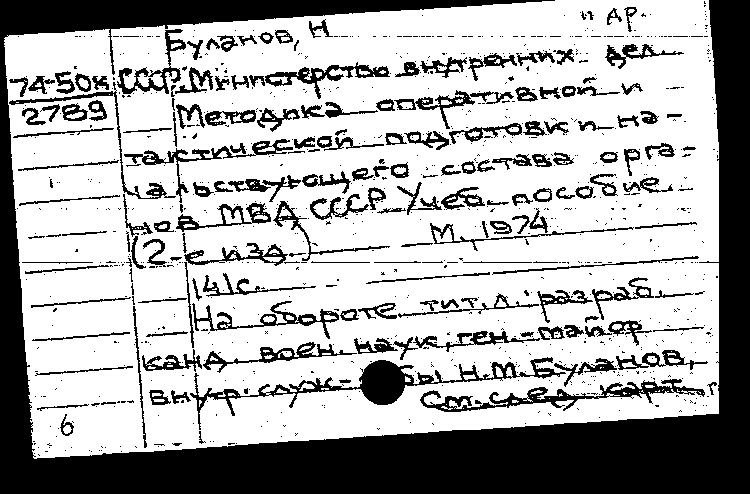 " др.
Буланов, Н
74-50к СССР. Министерство внутренних дел
2789 Методика оперативной и
тактической подготовки на-
чальствующего состава орга-
нов МВД СССР Учеб. пособие.
(2-е изд.) М., 1974.
141с.
На обороте тит.л.: разраб.
канд. воен. наук, ген.-майор
внутр. служ- бы Н.М. Буланов,
См. след карт.
6